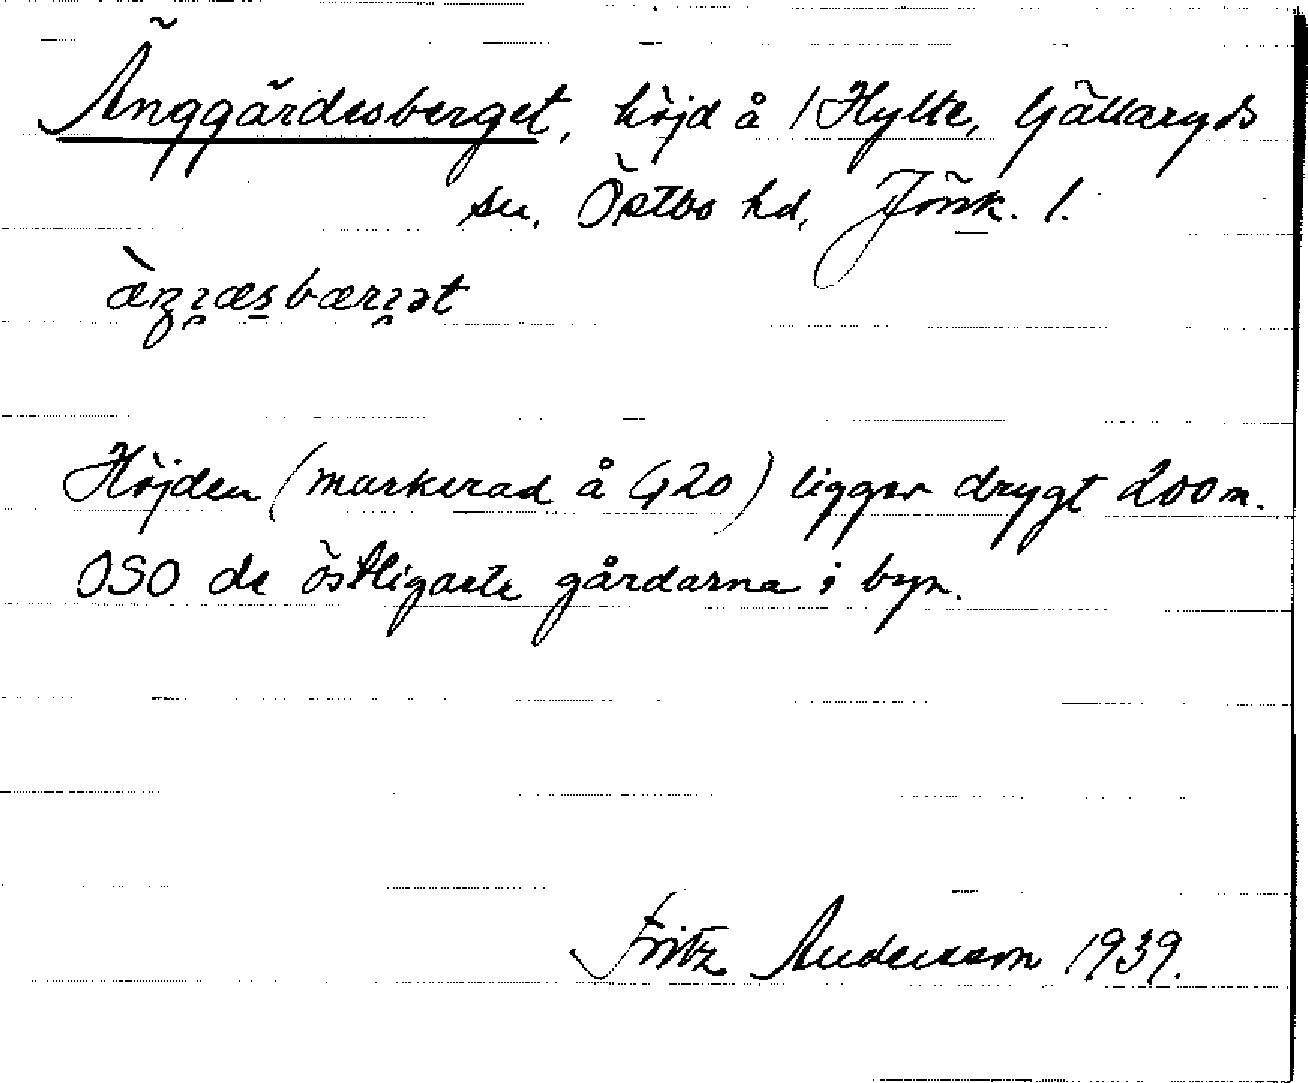 Änggärdesberget, höjd å 1 Hylte, Gällaryds
sn, Östbo hd, Jönk. l.
Höjden (markerad å G20) ligger drygt 200 m.
OSO de östligaste gårdarna i byn.
Fritz Andersson 1939.